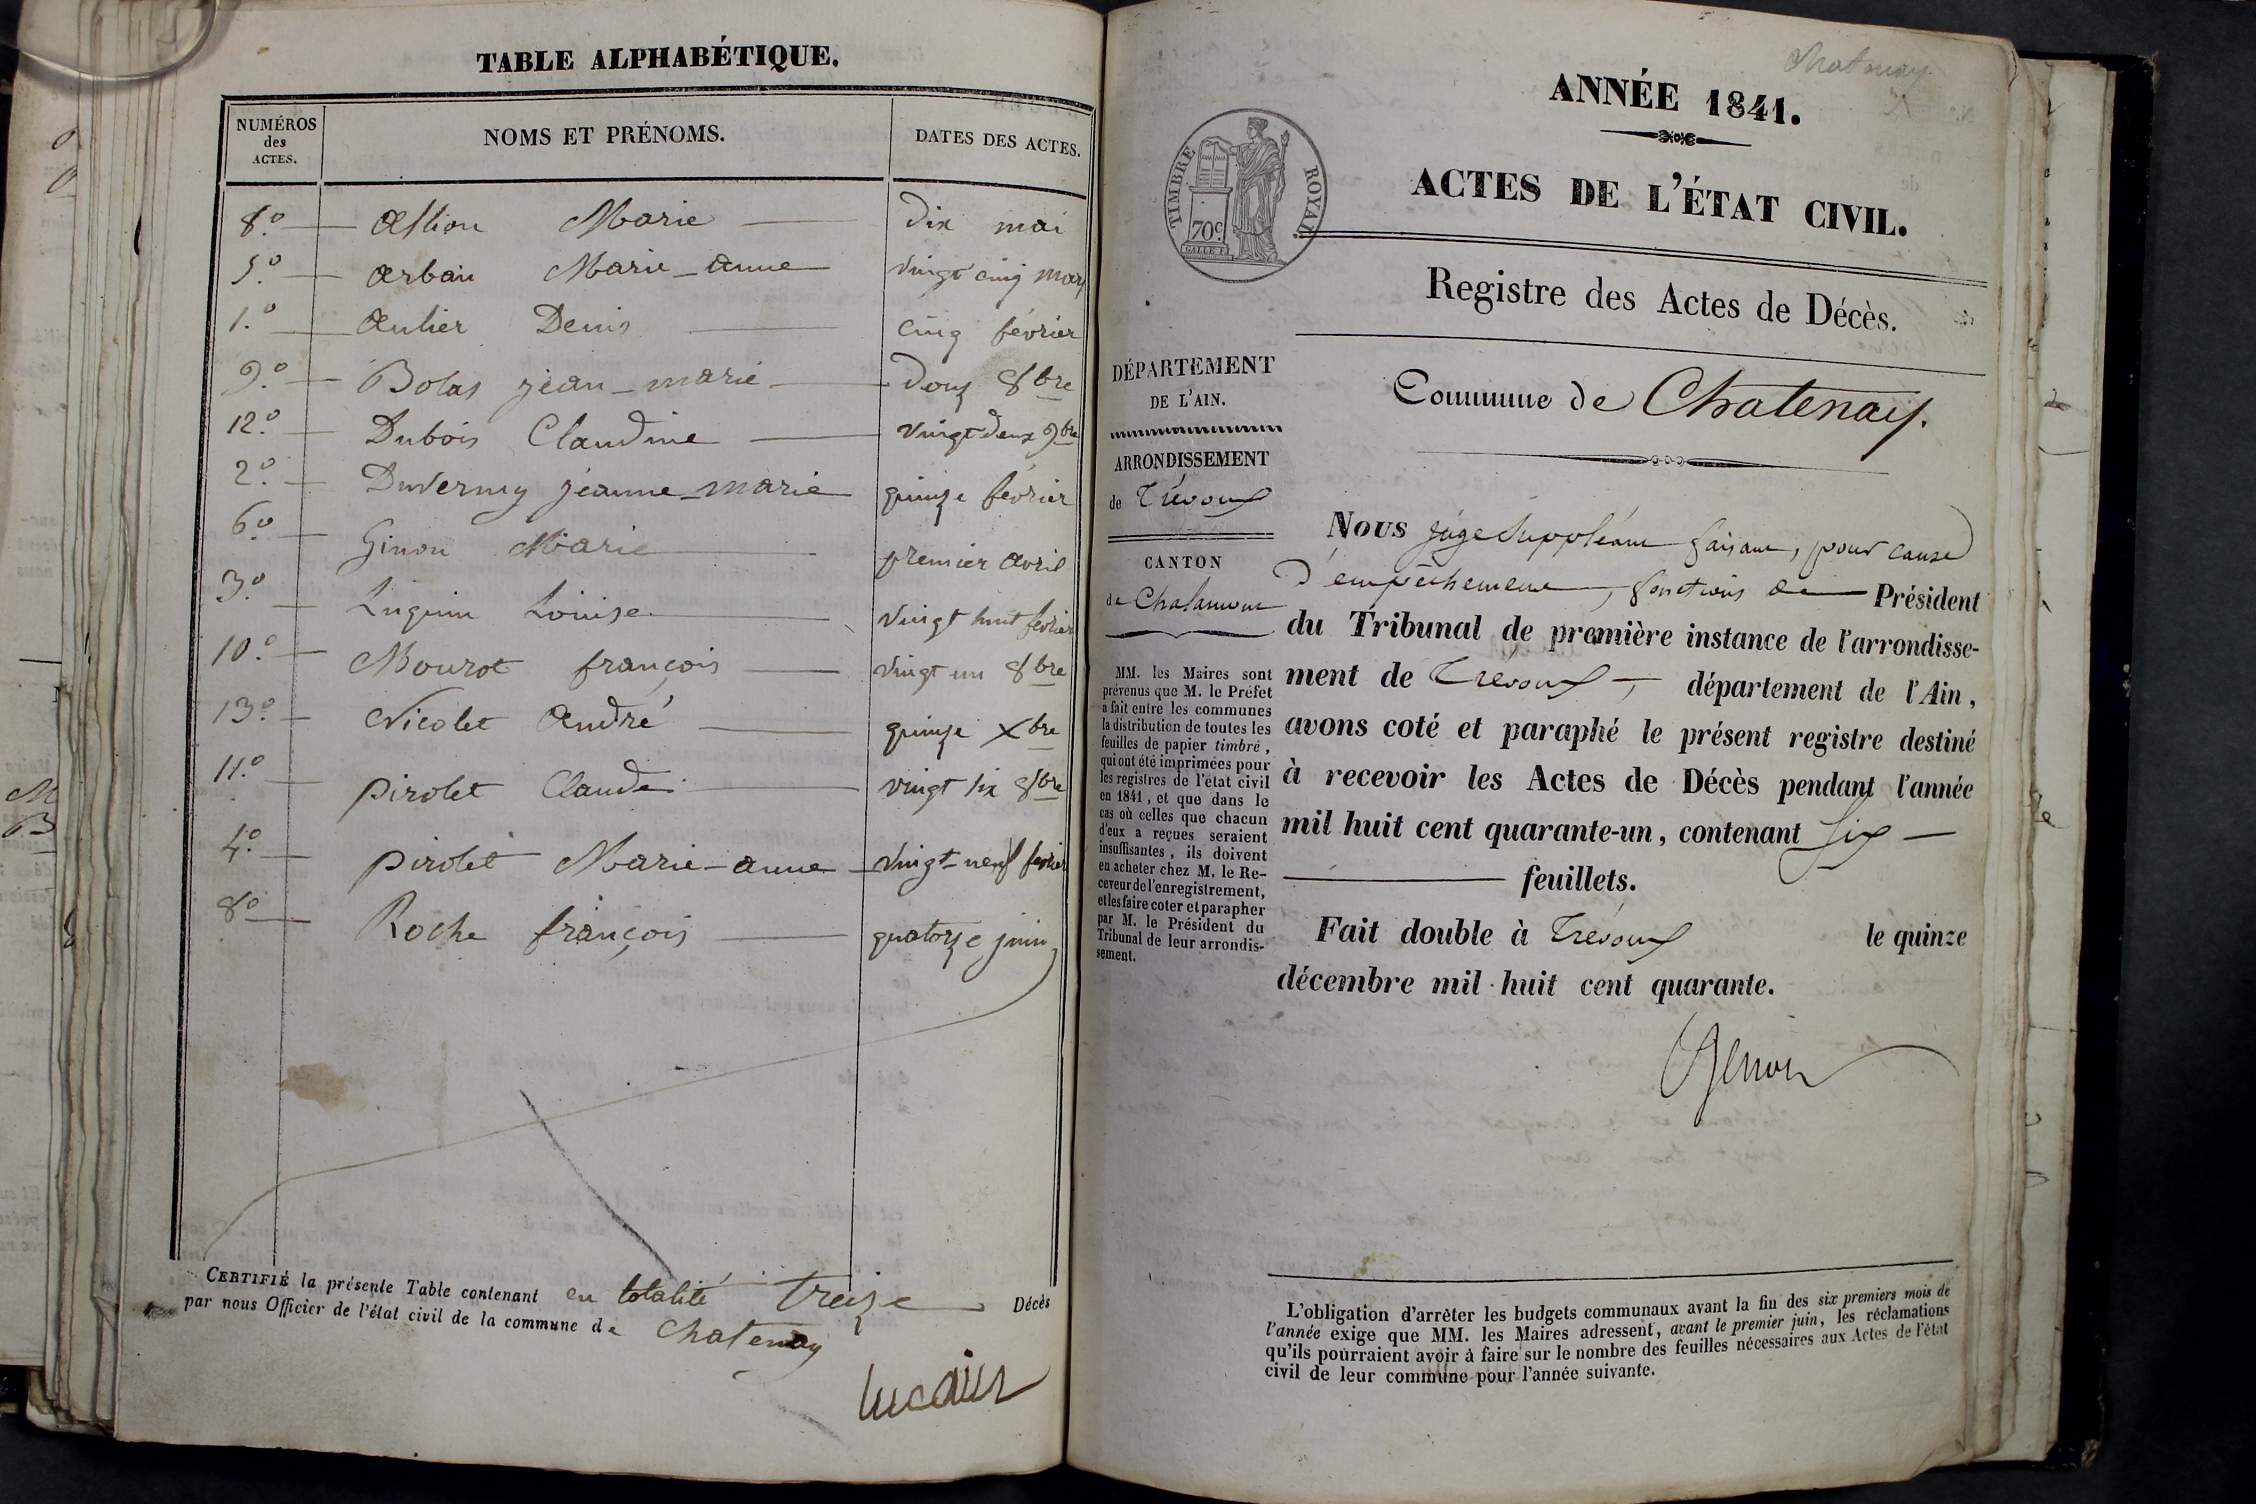 TABLE ALPHABÉTIQUE.
NUMÉROS des ACTES. NOMS ET PRÉNOMS. DATES DES ACTES.
8.º Marie dix mai
5.º Arban Marie-anne vingt cinq mars
1.º Aulier Denis cinq février
9.º Bolas jean-marie douze 8bre
12.º Dubois Claudine vingt deux 9bre
2.º Duvernay jeanne-marie quinze février
6.º Ginon Marie premier avril
3.º Luguin Louise vingt huit février
10.º Mourot françois vingt un 8bre
13.º Nicolet André quinze Xbre
11.º pirolet Claude vingt six 8bre
4.º pirolet Marie-anne vingt-neuf février
8º Roche françois quatorze juin
CERTIFIÉ la présente Table contenant en totalité treize Décès
par nous Officier de l'état civil de la commune de Chatenay
Chatenay
ANNÉE 1841.
ACTES DE L'ÉTAT CIVIL.
TIMBRE ROYAL
70 c.
Registre des Actes de Décès.
Commune de Chatenay.
DÉPARTEMENT
DE L'AIN.
ARRONDISSEMENT
de Trévoux
CANTON
de Chalamont
MM. les Maires sont
prévenus que M. le Préfet
a fait entre les communes
la distribution de toutes les
feuilles de papier timbré,
qui ont été imprimées pour
les registres de l'état civil
en 1841, et que dans le
cas où celles que chacun
d'eux a reçues seraient
insuffisantes, ils doivent
en acheter chez M. le Re-
ceveur de l'enregistrement,
et les faire coter et parapher
par M. le Président du
Tribunal de leur arrondis-
sement.
Nous juge Suppléant faisant, pour cause
d'empêchement, fonctions de Président
du Tribunal de première instance de l'arrondisse-
ment de Trévoux, département de l'Ain,
avons coté et paraphé le présent registre destiné
à recevoir les Actes de Décès pendant l'année
mil huit cent quarante-un, contenant six
feuillets.
Fait double à Trévoux le quinze
décembre mil huit cent quarante.
L'obligation d'arrêter les budgets communaux avant la fin des six premiers mois de
l'année exige que MM. les Maires adressent, avant le premier juin, les réclamations
qu'ils pourraient avoir à faire sur le nombre des feuilles nécessaires aux Actes de l'état
civil de leur commune pour l'année suivante.